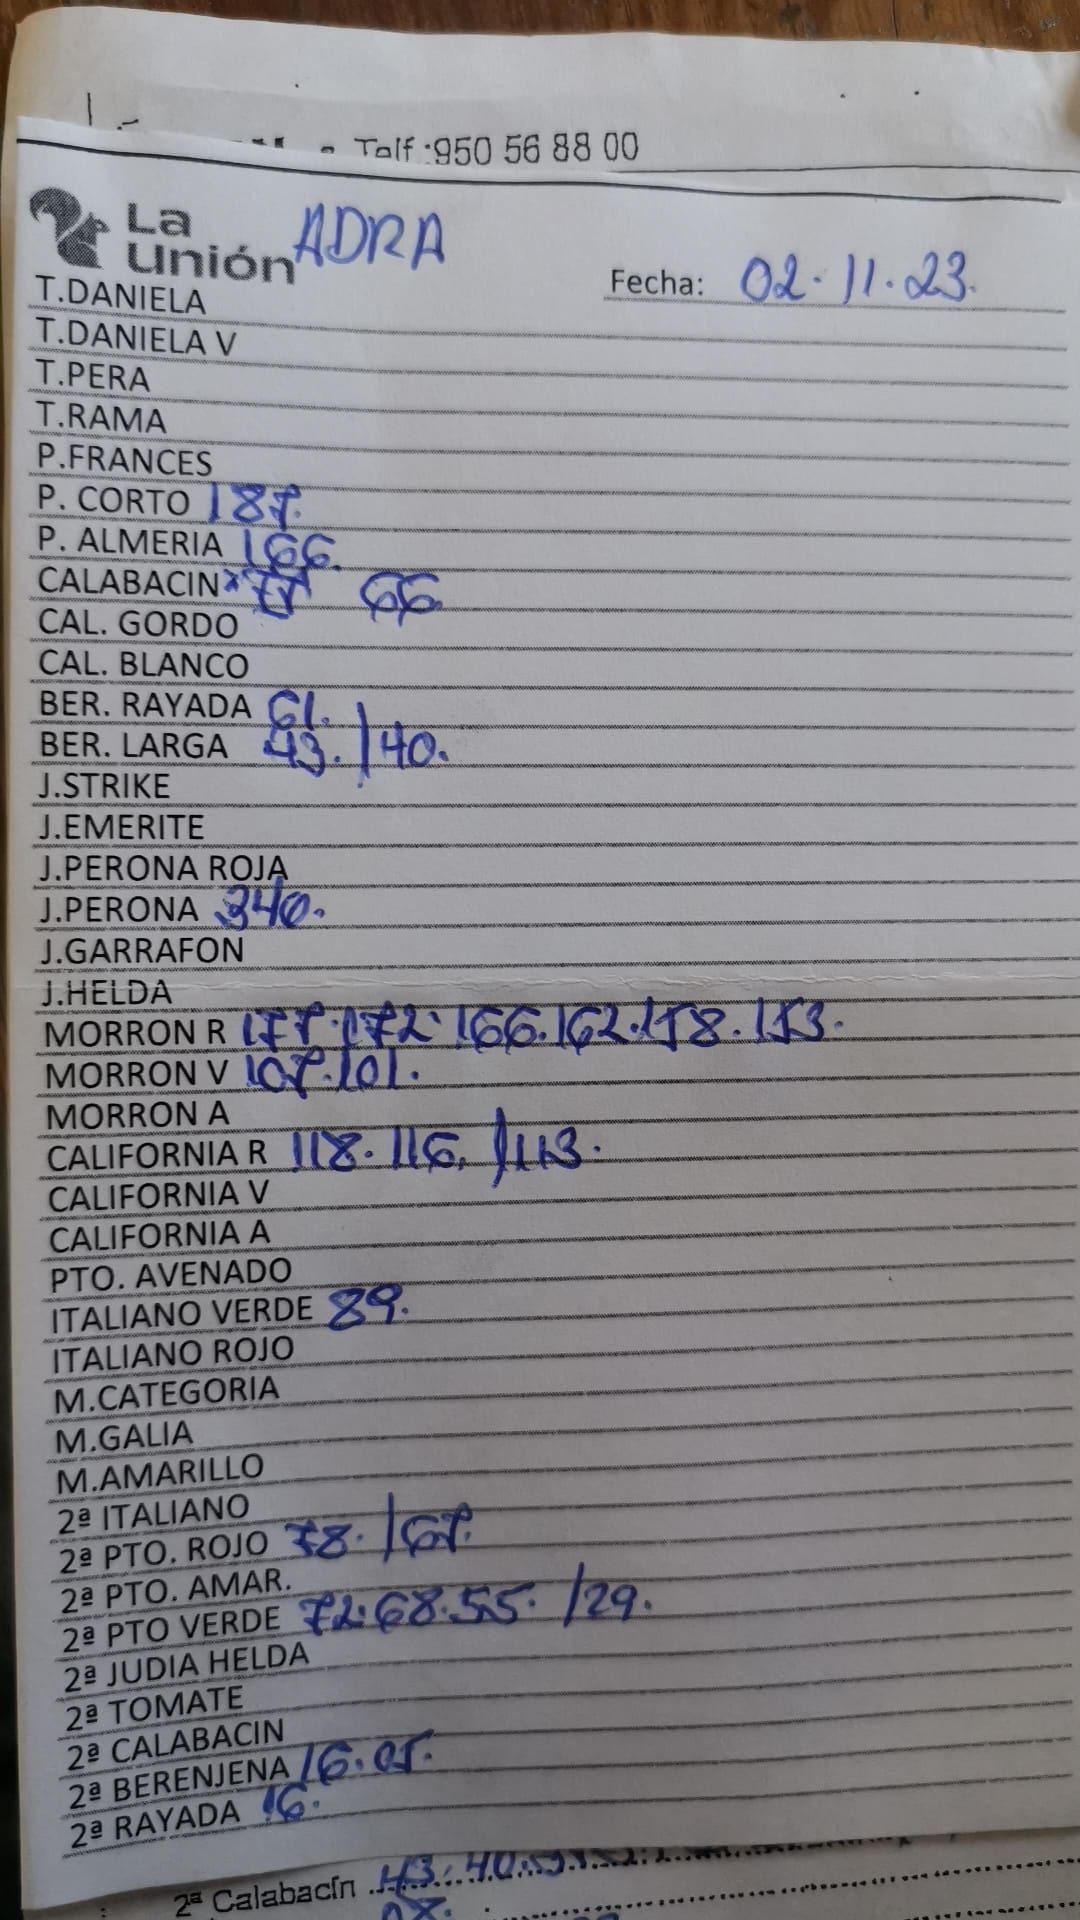 Telf.:950 56 88 00
La Unión ADRA
Fecha: 02.11.23.
T.DANIELA
T.DANIELA V
T.PERA
T.RAMA
P.FRANCES
P. CORTO 187.
P. ALMERIA 166.
CALABACIN 66
CAL. GORDO
CAL. BLANCO
BER. RAYADA 61.
BER. LARGA 43. / 40.
J.STRIKE
J.EMERITE
J.PERONA ROJA
J.PERONA 340.
J.GARRAFON
J.HELDA
MORRON R 177.172.166.162.158.153.
MORRON V 107.101.
MORRON A
CALIFORNIA R 118.116. / 113.
CALIFORNIA V
CALIFORNIA A
PTO. AVENADO
ITALIANO VERDE 89.
ITALIANO ROJO
M.CATEGORIA
M.GALIA
M.AMARILLO
2ª ITALIANO
2ª PTO. ROJO 78. / 67.
2ª PTO. AMAR.
2ª PTO VERDE 72.68.55. / 29.
2ª JUDIA HELDA
2ª TOMATE
2ª CALABACIN
2ª BERENJENA 16.05.
2ª RAYADA 16.
2ª Calabacín 43.40.